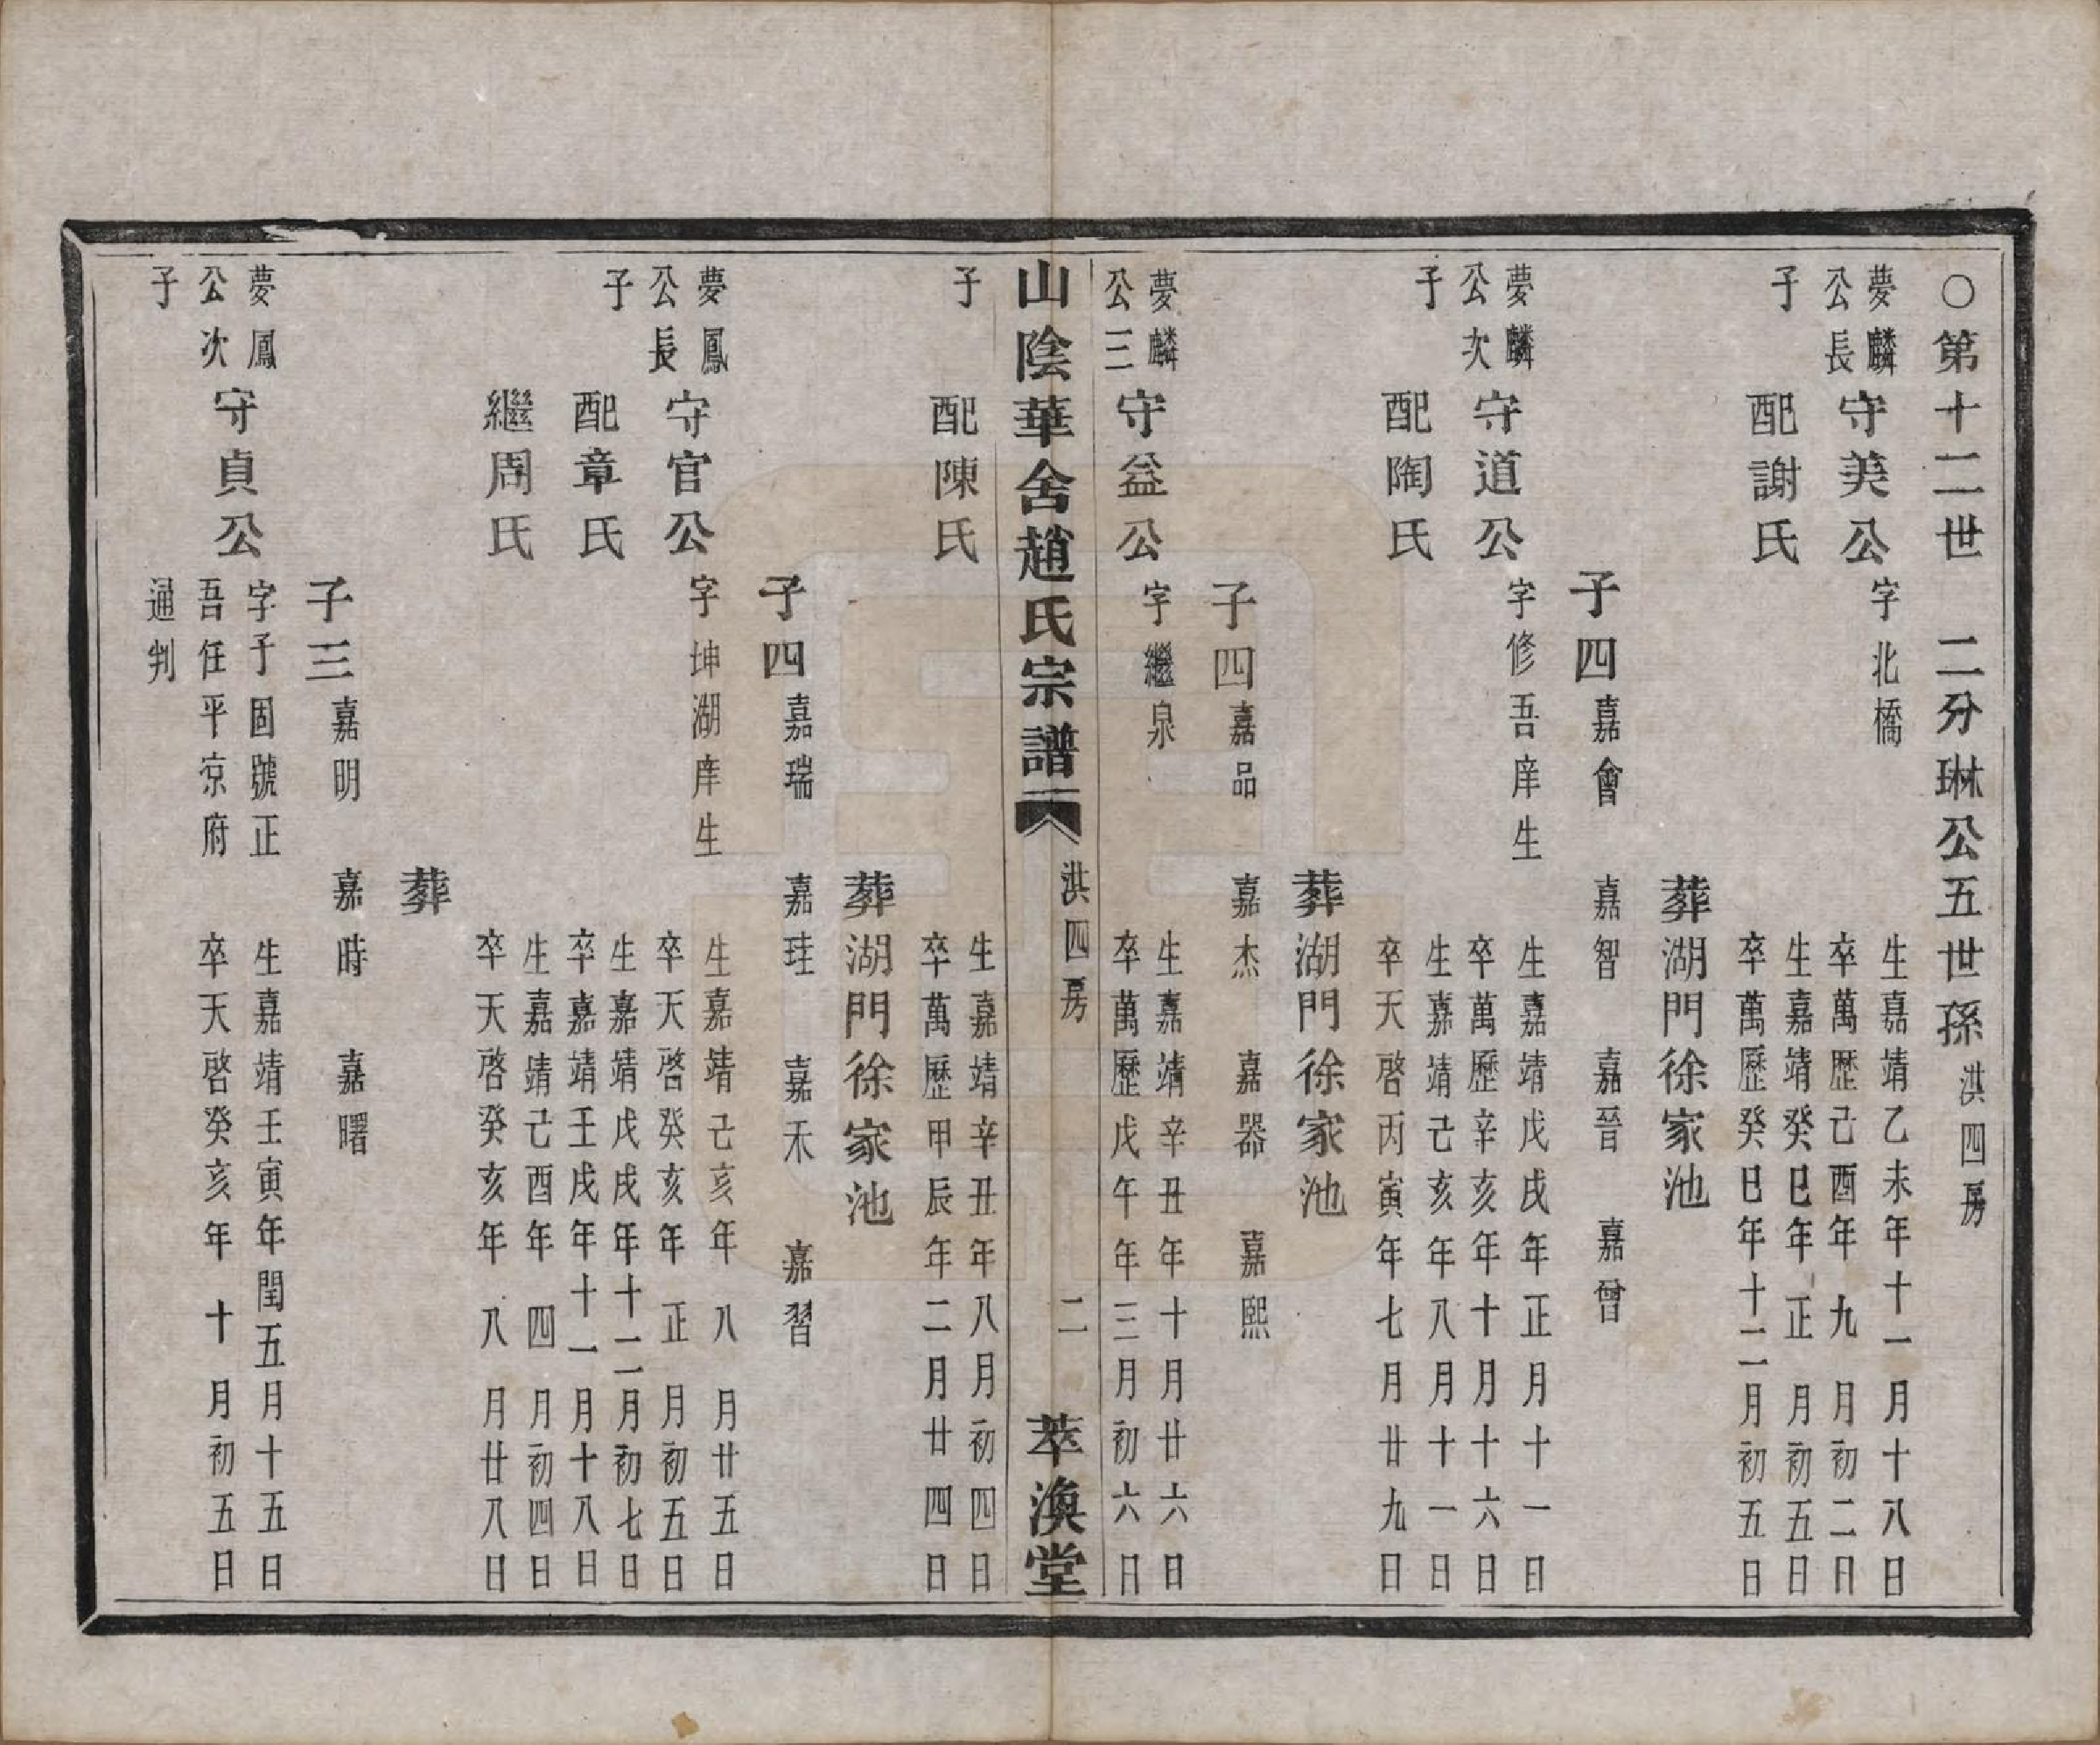 ○第十二世　二分琳公五世孫　洪四房
夢麟公長子　守美公　字北橋　生嘉靖乙未年十一月十八日　卒萬歷己酉年九月初二日
配謝氏　生嘉靖癸巳年正月初五日　卒萬歷癸巳年十二月初五日
葬湖門徐家池
子四　嘉會　嘉智　嘉晉　嘉曾
夢麟公次子　守道公　字修吾庠生　生嘉靖戊戌年正月十一日　卒萬歷辛亥年十月十六日
配陶氏　生嘉靖己亥年八月十一日　卒天啓丙寅年七月廿九日
葬湖門徐家池
子四　嘉品　嘉杰　嘉器　嘉熙
夢麟公三　守益公　字繼泉　生嘉靖辛丑年十月廿六日　卒萬歷戊午年三月初六日
山陰華舍趙氏宗譜　洪四房　二　萃渙堂
子　配陳氏　生嘉靖辛丑年八月初四日　卒萬歷甲辰年二月廿四日
葬湖門徐家池
子四　嘉瑞　嘉珪　嘉禾　嘉習
夢鳳公長子　守官公　字坤湖庠生　生嘉靖己亥年八月廿五日　卒天啓癸亥年正月初五日
配章氏　生嘉靖戊戌年十二月初七日　卒嘉靖壬戌年十一月十八日
繼周氏　生嘉靖己酉年四月初四日　卒天啓癸亥年八月廿八日
葬
子三　嘉明　嘉時　嘉曙
夢鳳公次子　守貞公　字子固號正吾任平凉府通判　生嘉靖壬寅年閏五月十五日　卒天啓癸亥年十月初五日